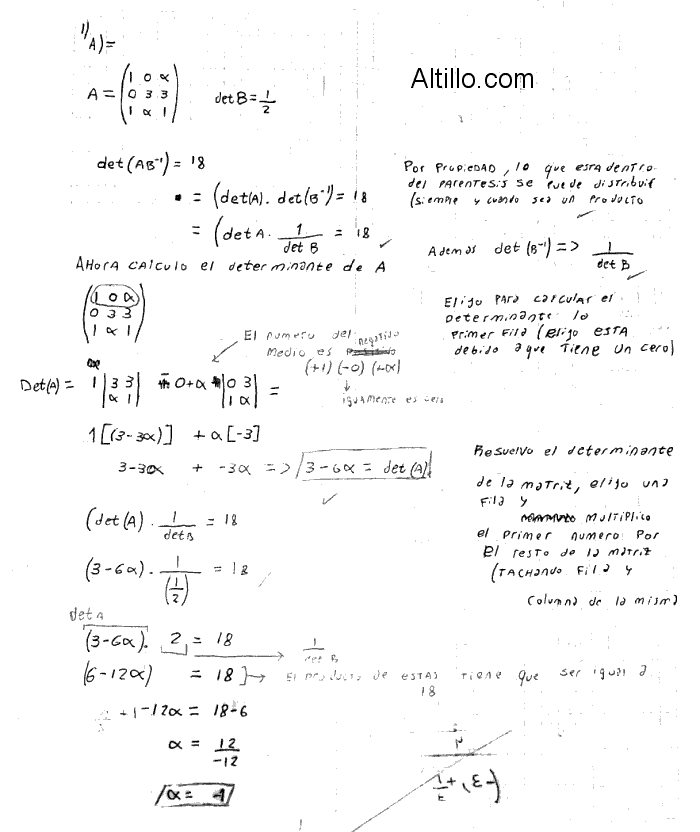 1) A)=
Altillo.com
A = (1 0 α
0 3 3
1 α 1)
det B = 1/2
det(AB⁻¹) = 18
= (det(A). det(B⁻¹) = 18
= (det A . 1/det B = 18
Por Propiedad, lo que esta dentro
del parentesis se puede distribuir
(siempre y cuando sea un producto
Ademas det(B⁻¹) => 1/det B
Ahora calculo el determinante de A
(1 0 α
0 3 3
1 α 1)
Elijo para calcular el
Determinante la
Primer fila (Elijo esta
debido a que tiene un cero)
El numero del
medio es negativo
(+1) (-0) (+α)
igualmente es cero
Det(A) = 1 |3 3
α 1| - 0 + α |0 3
1 α| =
1[(3-3α)] + α[-3]
3-3α + -3α => 3-6α = det(A)
Resuelvo el determinante
de la matriz, elijo una
Fila y
multiplico
el primer numero por
el resto de la matriz
(Tachando fila y
Columna de la misma
(det(A) . 1/det B = 18
(3-6α) . 1/(1/2) = 18
det A
(3-6α). 2 = 18
1/det B
(6-12α) = 18
El producto de estas tiene que ser igual a
18
-12α = 18-6
α = 12/-12
α = -1